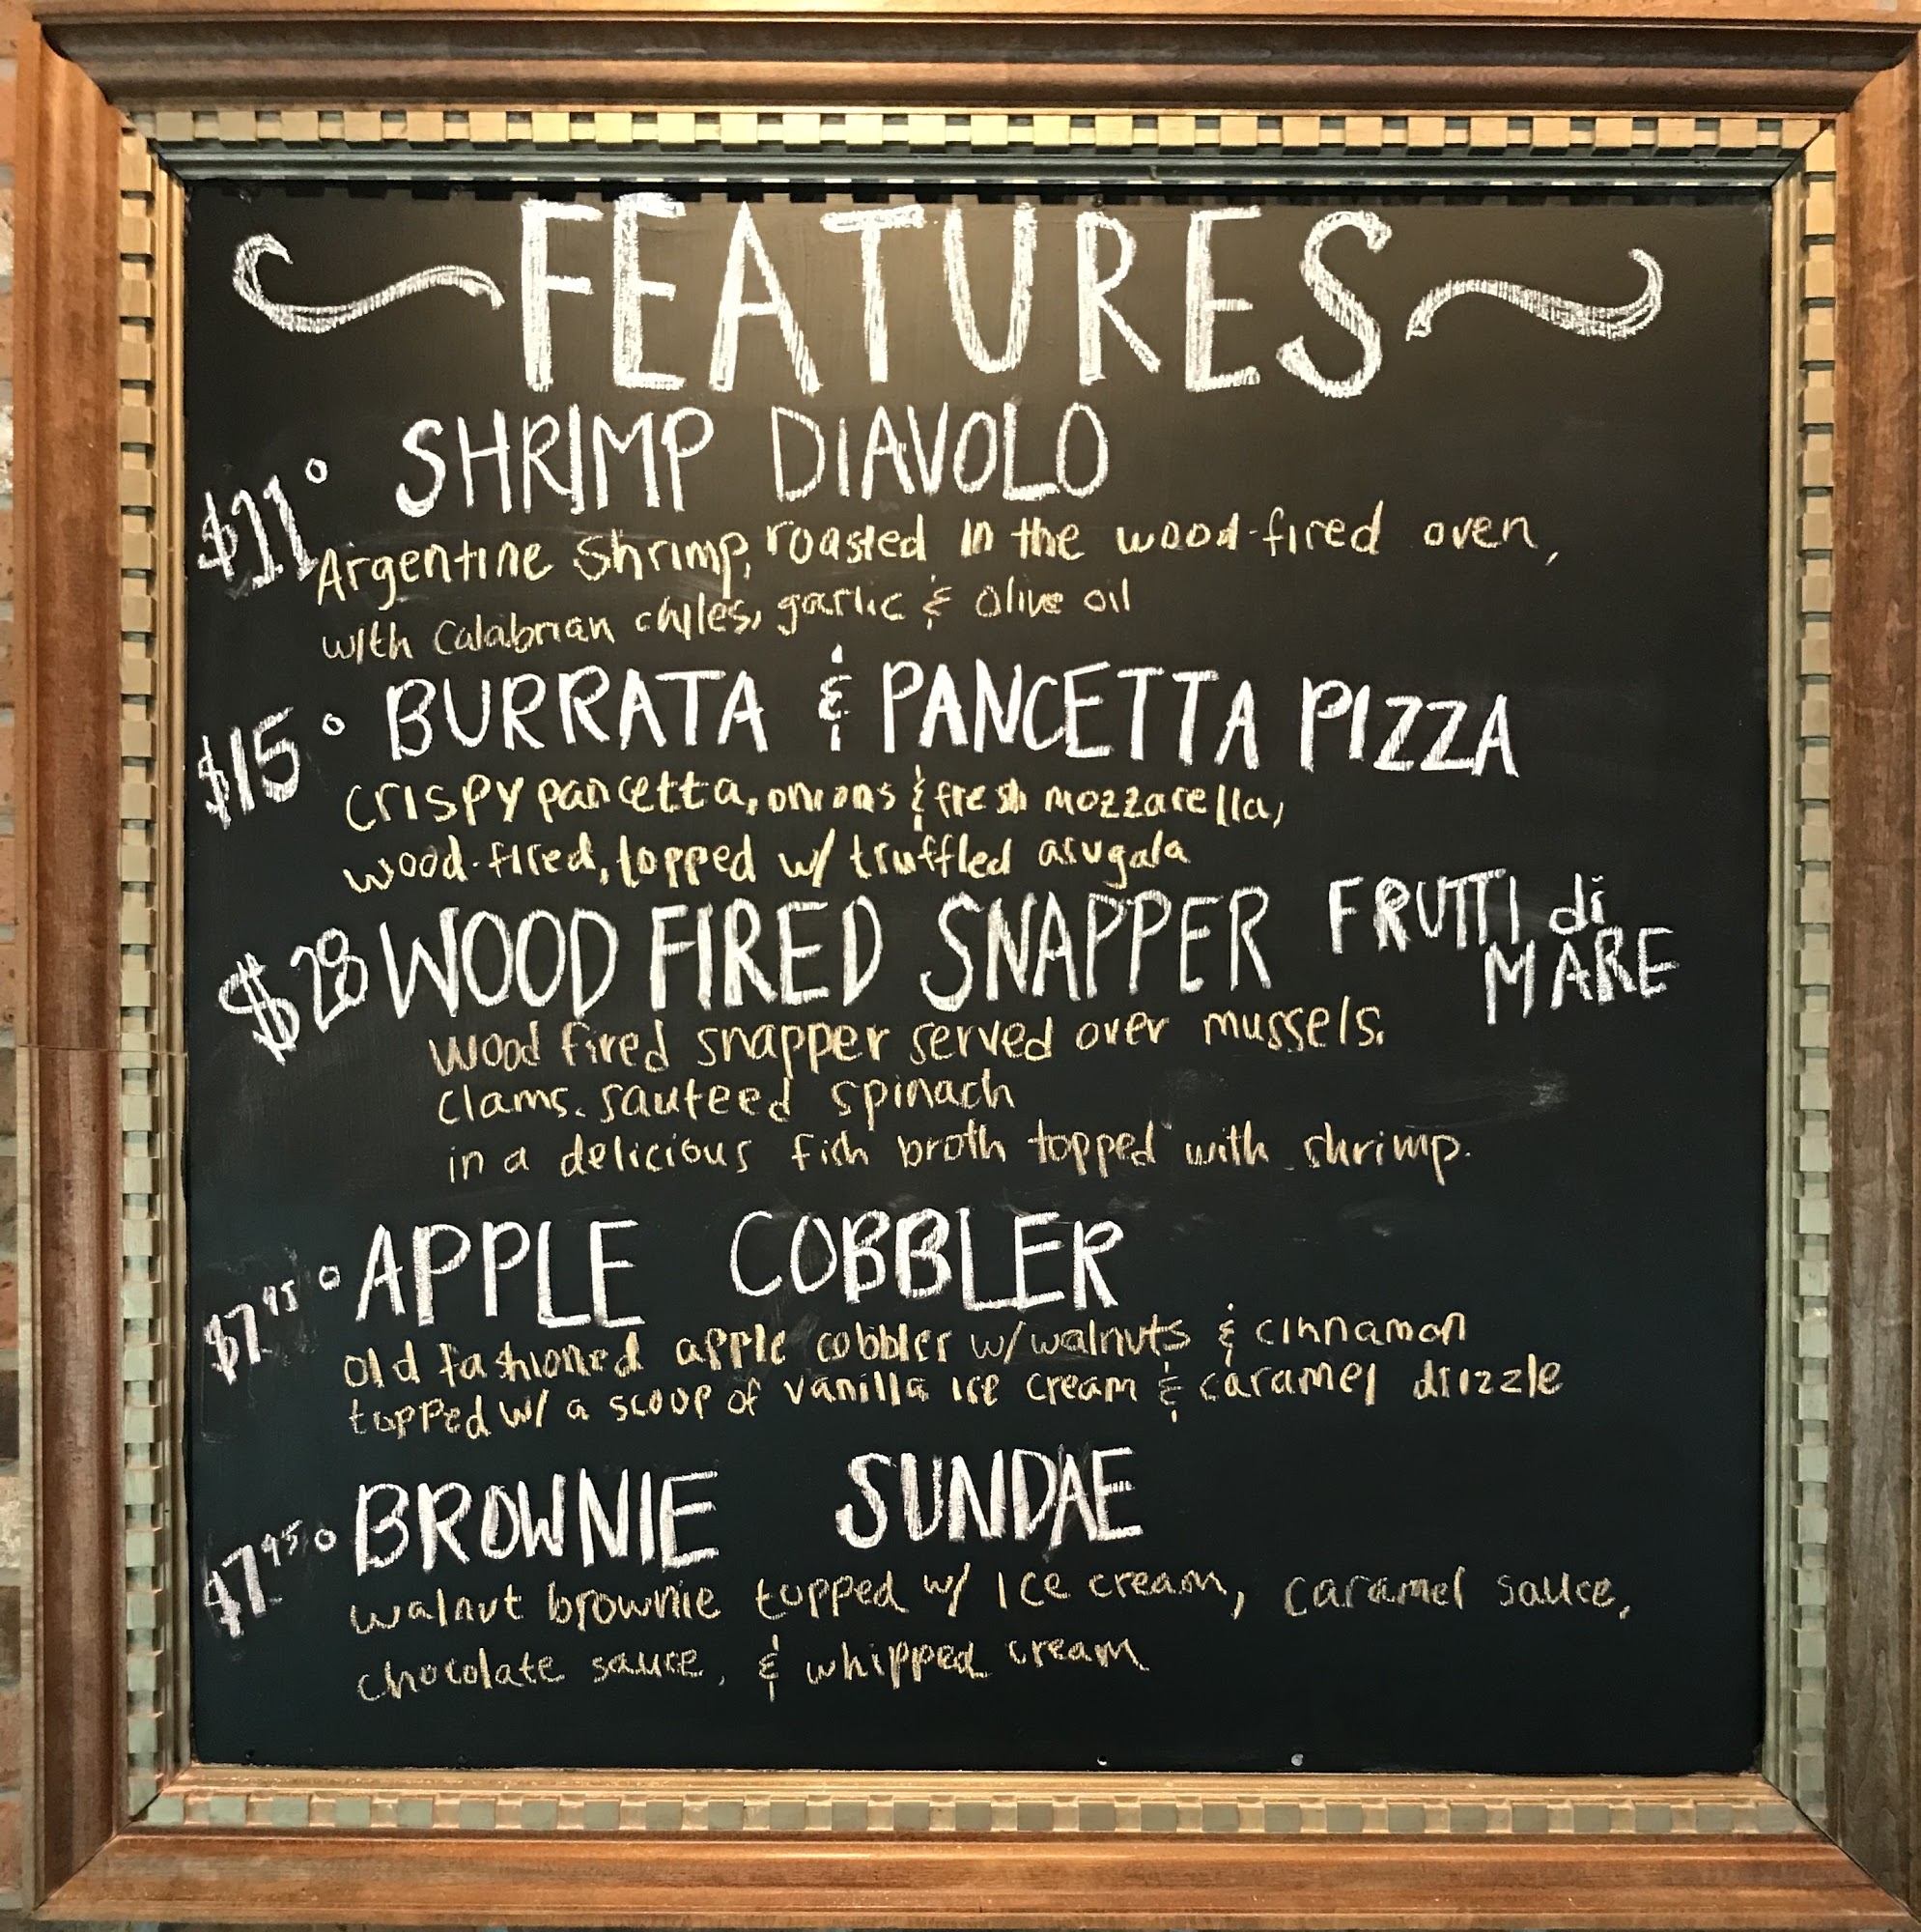 FEATURES
$11° SHRIMP DIAVOLO
Argentine shrimp, roasted in the wood-fired oven,
with Calabrian chiles, garlic & olive oil
$15° BURRATA & PANCETTA PIZZA
crispy pancetta, onions & fresh mozzarella,
wood-fired, topped w/ truffled arugala
$28 WOOD FIRED SNAPPER FRUTTI di MARE
wood fired snapper served over mussels.
clams. sauteed spinach
in a delicious fish broth topped with shrimp.
$7.95° APPLE COBBLER
old fashioned apple cobbler w/ walnuts & cinnamon
topped w/ a scoop of vanilla ice cream & caramel drizzle
$7.95° BROWNIE SUNDAE
walnut brownie topped w/ ice cream, caramel sauce,
chocolate sauce, & whipped cream